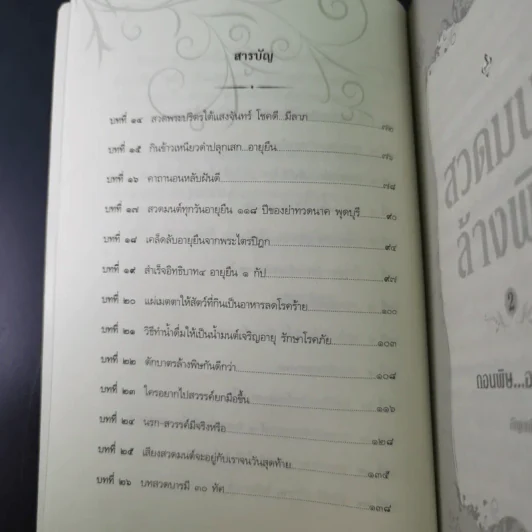 สารบัญ
บทที่ ๑๔ สวดพระปริตรใต้แสงจันทร์ โชคดี...มีลาภ ๗๒
บทที่ ๑๕ กินข้าวเหนียวดำปลุกเสก...อายุยืน ๗๖
บทที่ ๑๖ คาถานอนหลับฝันดี ๗๘
บทที่ ๑๗ สวดมนต์ทุกวันอายุยืน ๑๑๘ ปีของย่าทวดนาค พูดบุรี ๙๐
บทที่ ๑๘ เคล็ดลับอายุยืนจากพระไตรปิฎก ๙๔
บทที่ ๑๙ สำเร็จอิทธิบาท๔ อายุยืน ๑ กัป ๙๗
บทที่ ๒๐ แผ่เมตตาให้สัตว์ที่กินเป็นอาหารลดโรคร้าย ๑๐๐
บทที่ ๒๑ วิธีทำน้ำดื่มให้เป็นน้ำมนต์เจริญอายุ รักษาโรคภัย ๑๐๓
บทที่ ๒๒ ตักบาตรล้างพิษกันดีกว่า ๑๐๘
บทที่ ๒๓ ใครอยากไปสวรรค์ยกมือขึ้น ๑๑๖
บทที่ ๒๔ นรก-สวรรค์มีจริงหรือ ๑๒๘
บทที่ ๒๕ เสียงสวดมนต์จะอยู่กับเราจนวันสุดท้าย ๑๓๕
บทที่ ๒๖ บทสวดบารมี ๓๐ ทัศ ๑๓๘
สวดมน
ล้างพิ
๒
ถอนพิษ...